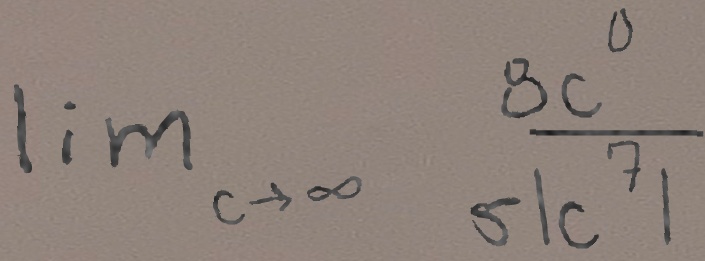 \lim_{c \to \infty} \frac{8c^0}{5|c^7|}